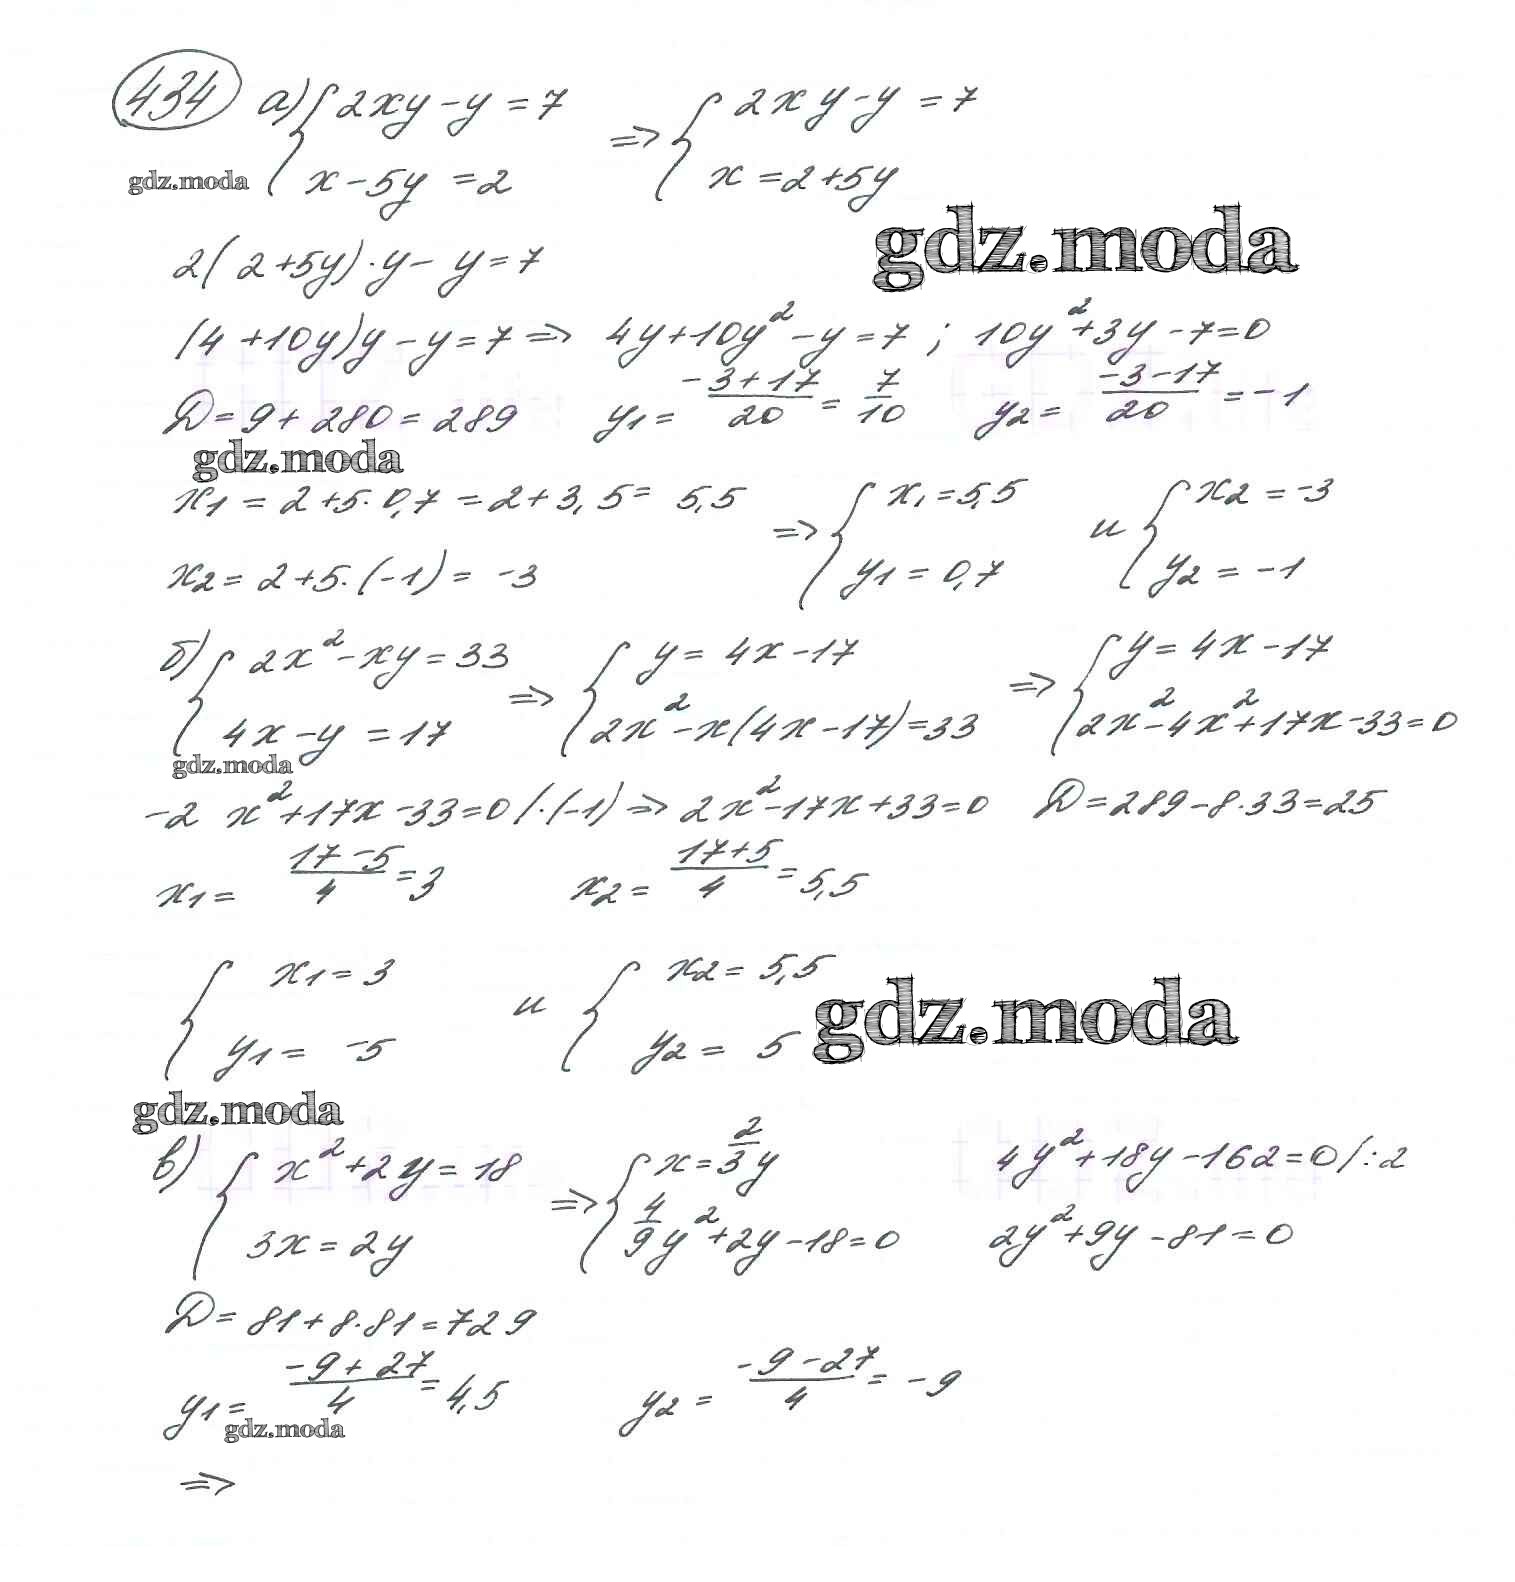 434 а) { 2xy - y = 7 => { 2xy - y = 7
x - 5y = 2 x = 2 + 5y
gdz.moda
gdz.moda
2(2+5y)·y - y = 7
(4+10y)y - y = 7 => 4y+10y² - y = 7 ; 10y²+3y - 7 = 0
Д = 9 + 280 = 289 y1 = (-3+17)/20 = 7/10 y2 = (-3-17)/20 = -1
gdz.moda
x1 = 2+5·0,7 = 2+3,5 = 5,5 => { x1 = 5,5 и { x2 = -3
x2 = 2+5·(-1) = -3 y1 = 0,7 y2 = -1
б) { 2x² - xy = 33 => { y = 4x - 17 => { y = 4x - 17
4x - y = 17 2x² - x(4x-17) = 33 2x² - 4x² + 17x - 33 = 0
gdz.moda
-2 x² + 17x - 33 = 0 /·(-1) => 2x² - 17x + 33 = 0 Д = 289 - 8·33 = 25
x1 = (17-5)/4 = 3 x2 = (17+5)/4 = 5,5
{ x1 = 3 и { x2 = 5,5
y1 = -5 y2 = 5
gdz.moda
gdz.moda
в) { x² + 2y = 18 => { x = 2/3 y 4y² + 18y - 162 = 0 /:2
3x = 2y 4/9 y² + 2y - 18 = 0 2y² + 9y - 81 = 0
Д = 81 + 8·81 = 729
y1 = (-9+27)/4 = 4,5 y2 = (-9-27)/4 = -9
gdz.moda
=>